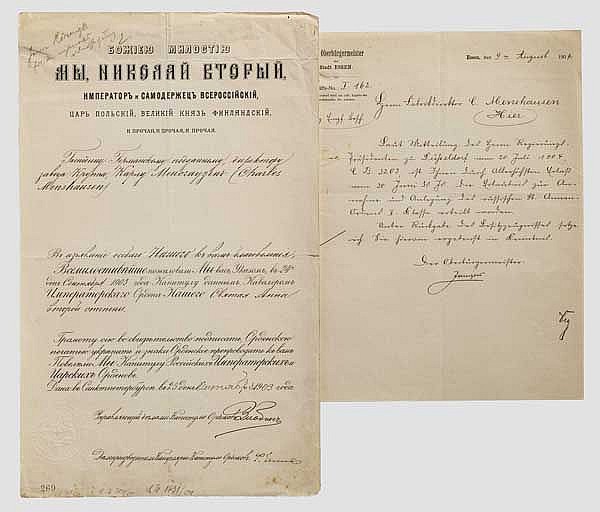 БОЖІЕЮ МИЛОСТІЮ
МЫ, НИКОЛАЙ ВТОРЫЙ,
ИМПЕРАТОРЪ и САМОДЕРЖЕЦЪ ВСЕРОССІЙСКІЙ,
ЦАРЬ ПОЛЬСКІЙ, ВЕЛИКІЙ КНЯЗЬ ФИНЛЯНДСКІЙ,
И ПРОЧАЯ, И ПРОЧАЯ, И ПРОЧАЯ.
Господину Германскому подданному, директору
завода Круппа, Карлу Менсгаузенъ (Charles
Monshausen)
Въ изъявленіе особаго Нашего къ вамъ благоволенія,
Всемилостивѣйше пожаловали Мы васъ, Указомъ, въ
день Сентября 1903 года Капитулу даннымъ, Кавалеромъ
Императорскаго Ордена Нашего Святыя Анны
второй степени.
Грамоту сію во свидѣтельство подписать, Орденскою
печатью укрѣпить и знаки Орденскіе препроводить къ вамъ
Повелѣли Мы Капитулу Россійскихъ Императорскихъ и
Царскихъ Орденовъ.
Дана въ Санктпетербургѣ, въ день 1903 года
Управляющій дѣлами Капитула Орденовъ
Капитула Орденовъ
269
Oberbürgermeister
der
Stadt ESSEN.
Essen, den 9 August 1904
No. I 162
Herrn Fabrikdirektor C. Menshausen
Hier
Laut Mitteilung des Herrn Regierungs-
Präsidenten zu Düsseldorf vom 20 Juli 1904
C B 3203 ist Ihnen durch Allerhöchsten Erlaß
vom 20 Juni d. Js. die Erlaubnis zur An-
nahme und Anlegung des russischen St. Annen-
Ordens II. Klasse erteilt worden.
Unter Rückgabe des Besitzzeugnisses setze
ich Sie hiervon ergebenst in Kenntnis.
Der Oberbürgermeister